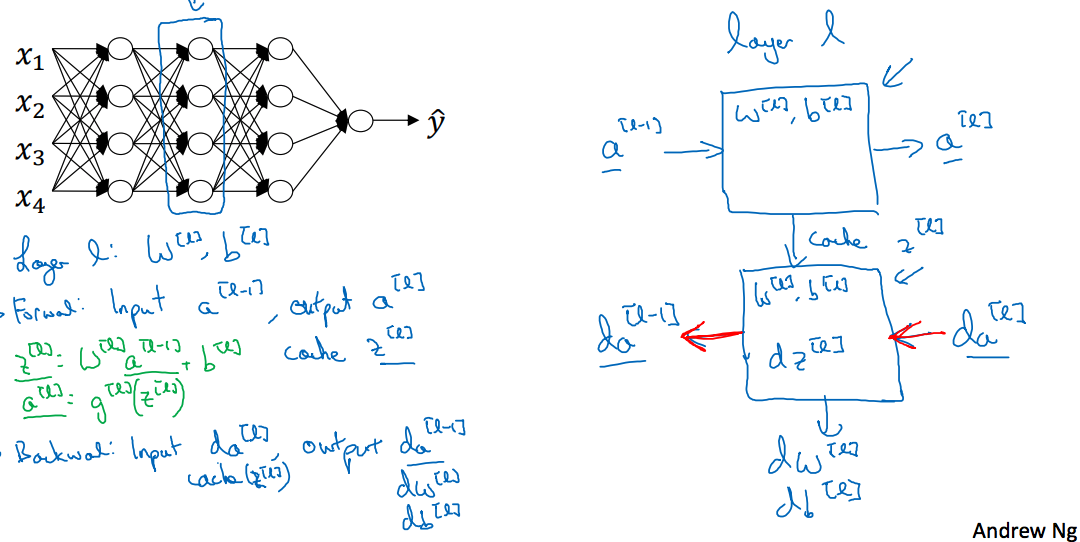 x₁
x₂
x₃
x₄
ŷ
Layer l: W^[l], b^[l]
Forward: Input a^[l-1], output a^[l]
z^[l] = W^[l] a^[l-1] + b^[l] cache z^[l]
a^[l] = g^[l](z^[l])
Backward: Input da^[l], output da^[l-1]
cache (z^[l]) dW^[l]
db^[l]
layer l
W^[l], b^[l]
a^[l-1]
a^[l]
cache z^[l]
W^[l], b^[l]
da^[l-1]
dz^[l]
da^[l]
dW^[l]
db^[l]
Andrew Ng